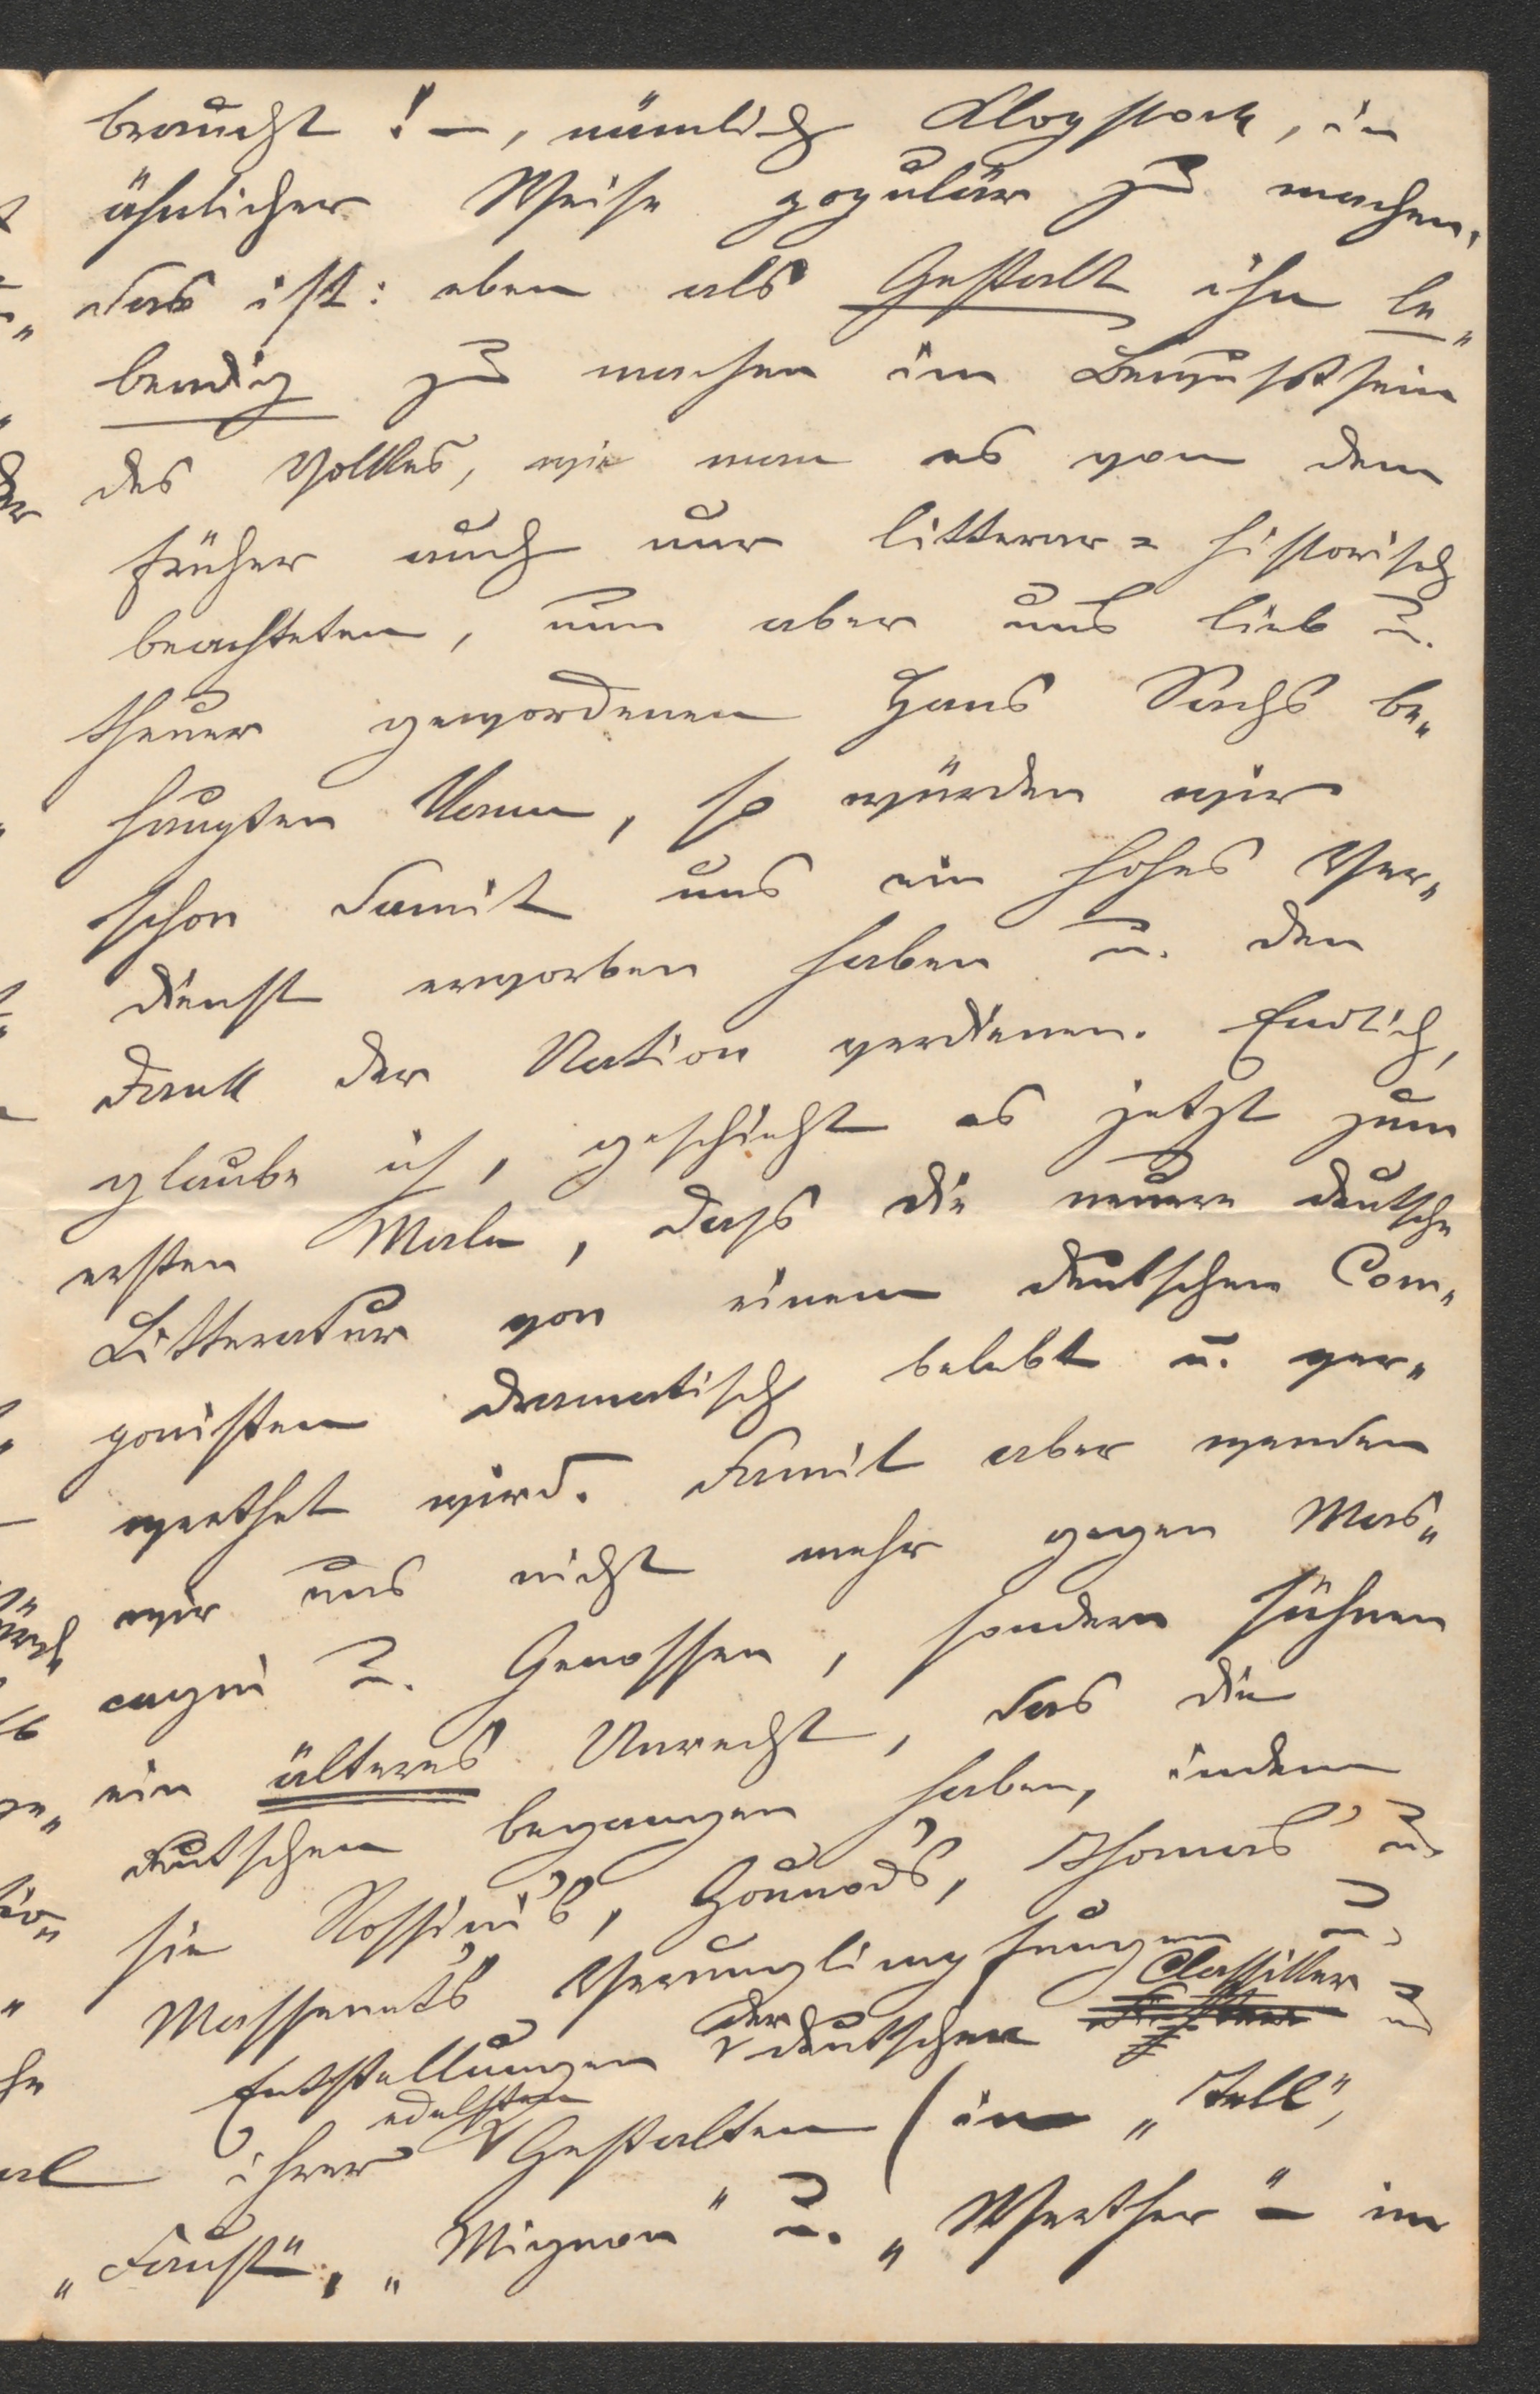 braucht! –, nämlich Klopstock, in
ähnlicher Weise populär zu machen,
das ist: eben als Gestalt ihn le„
bendig zu machen im Bewußtsein
des Volkes, wie man es von dem
früher auch nur litterar= historisch
beachteten, nun aber uns lieb u.
theuer gewordenen Hans Sachs be„
haupten kann, so würden wir
schon damit uns ein hohes Ver„
dienst erworben haben u. den
Dank der Nation verdienen. Endlich,
glaube ich, geschieht es jetzt zum
ersten Male, dass die neuere deutsche
Litteratur von einem deutschen Com„
ponisten dramatisch belebt u. ver„
werthet wird. Damit aber wenden
wir uns nicht mehr gegen Mas„
cagni u. Genossen, sondern sühnen
ein älteres Unrecht, das die
Deutschen begangen haben, indem
sie Rossini's, Gounod's, Thomas' u.
Massenet's Verunglimpfungen u.
Entstellungen der deutschen Classiker u.
ihrer edelsten Gestalten (im „Tell",
„Faust", „Mignon" u. „Werther" – im